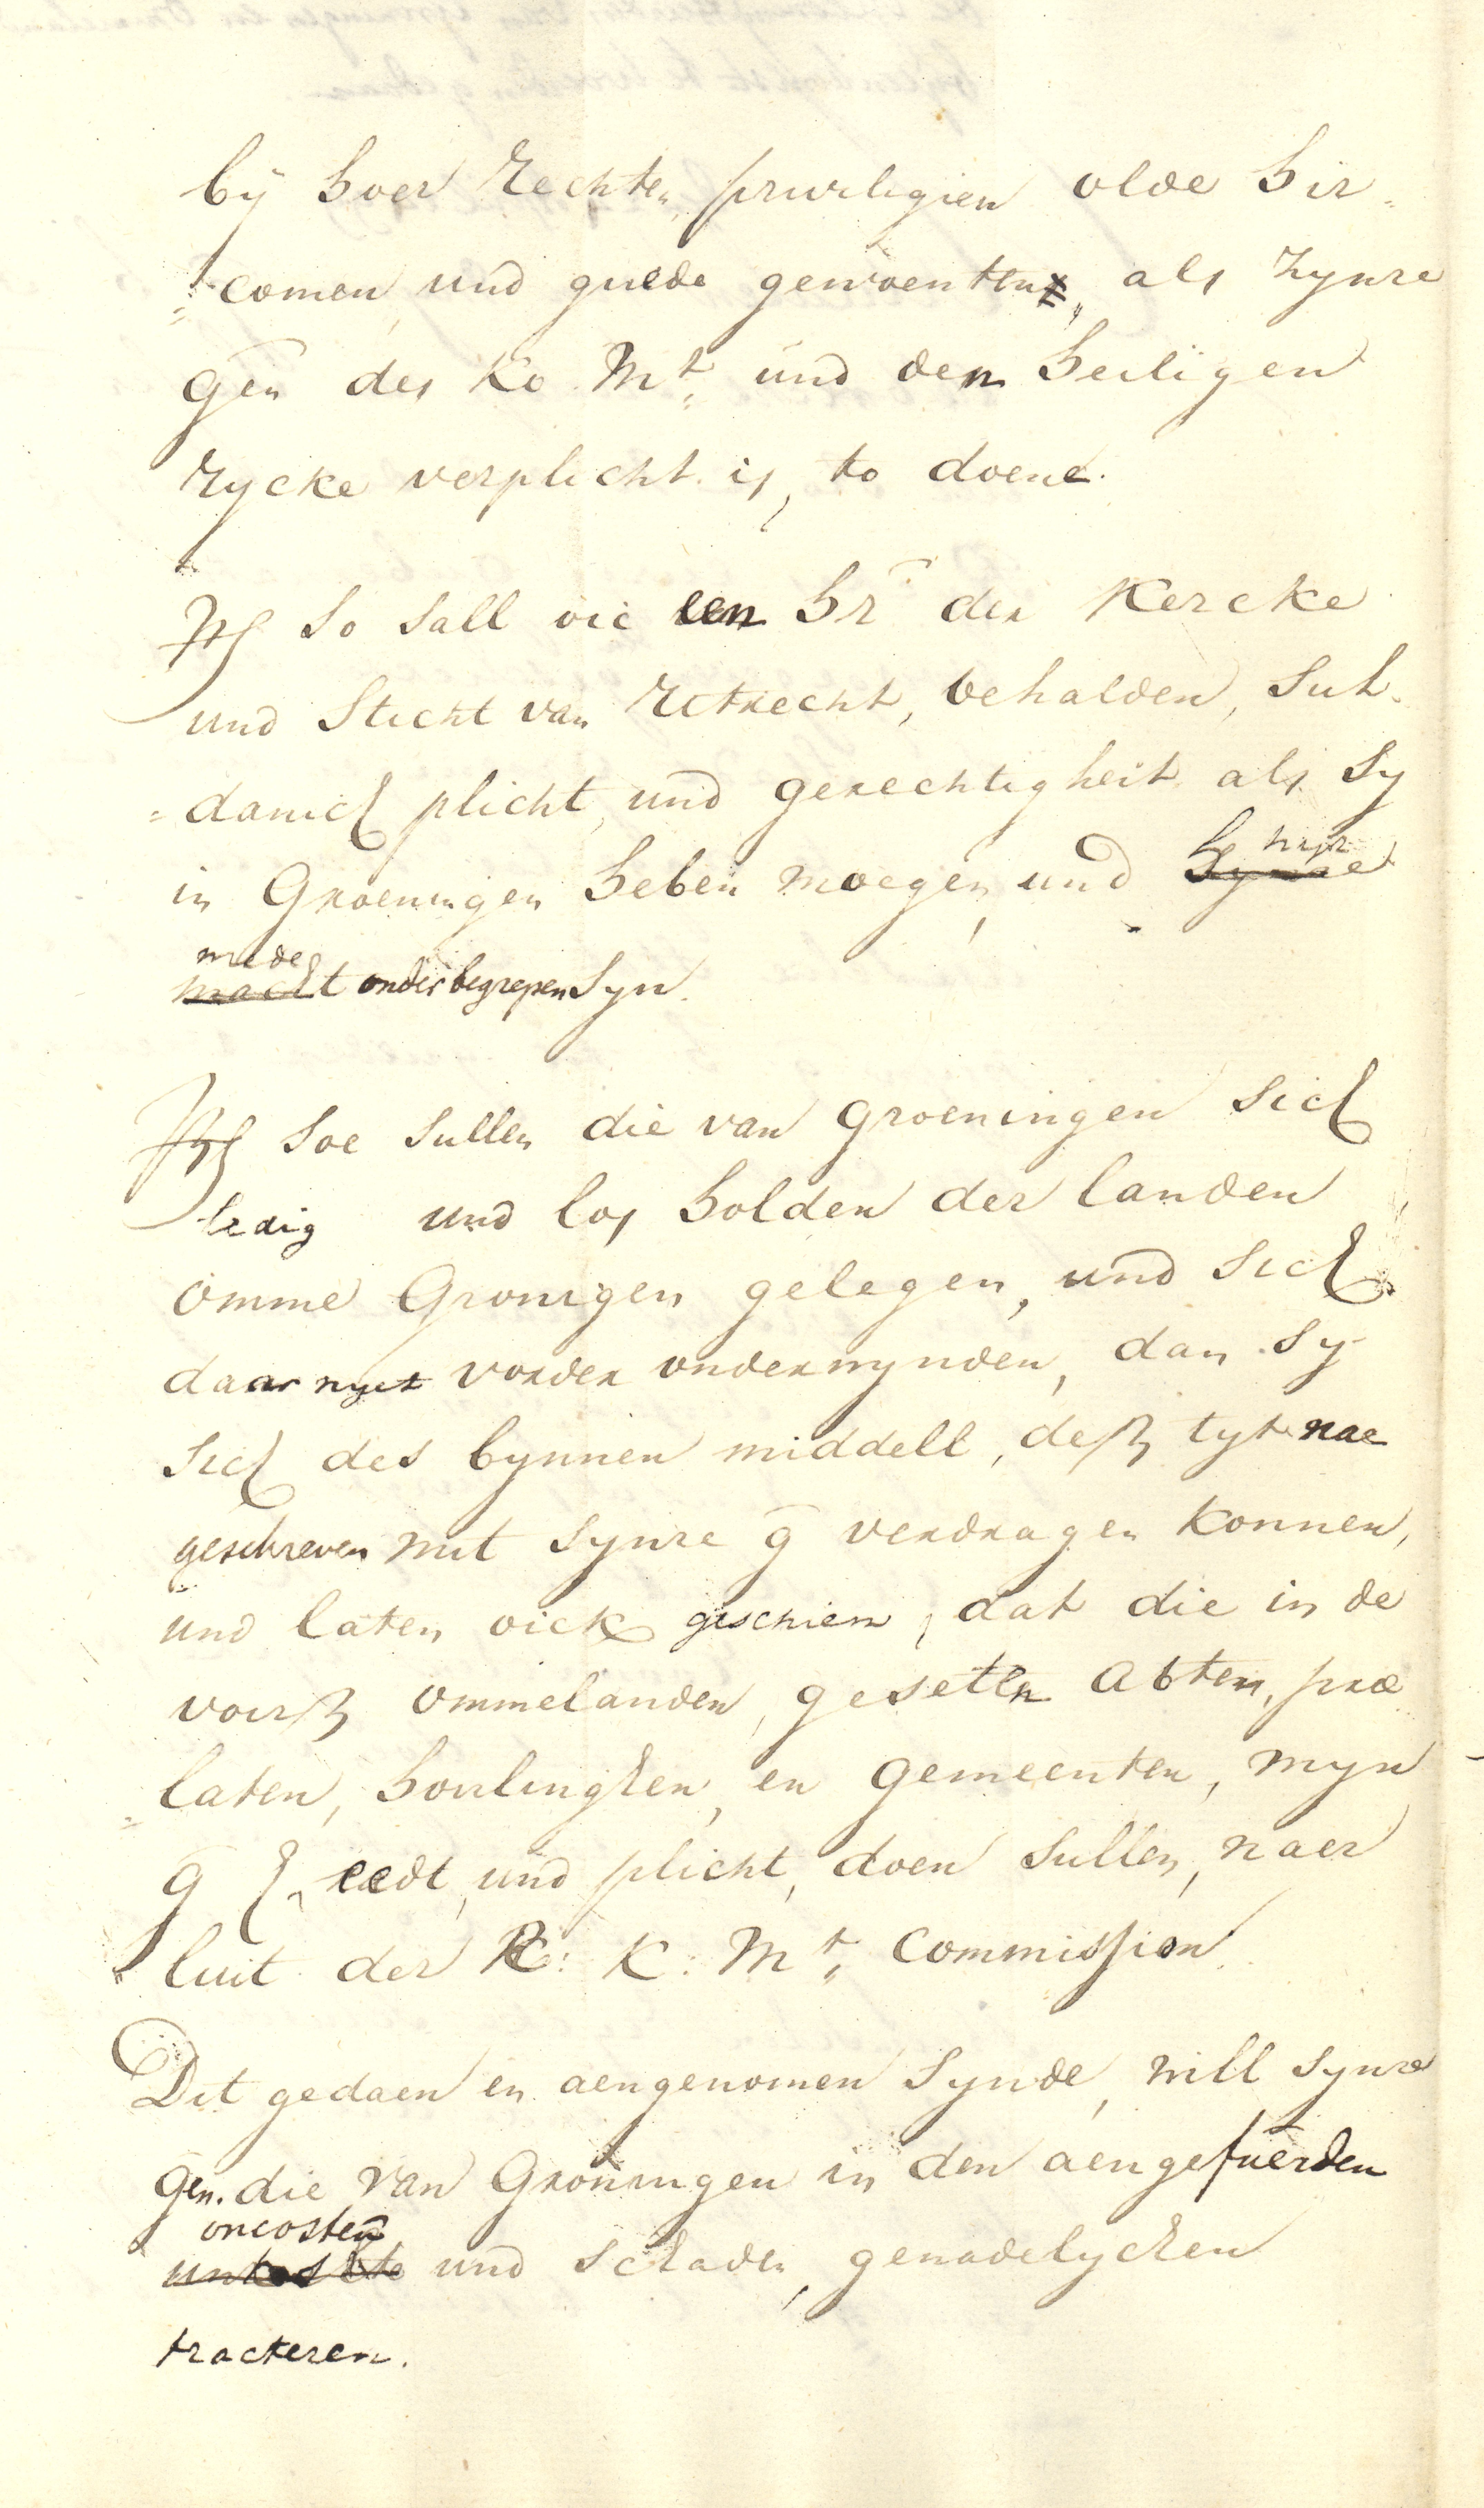 bÿ hoer rechten privilegien olde her-
comen und guede gewoenten, als zynre
gen des Ko. Mt. und dem heiligen
rycke verplicht is, to doene.
Itē so sall oic een hr der Kercke
und sticht van Utrecht, behalden, sul-
=danich plicht und gerechtigheit als sy
in Groeningen heben moegen, und hijr
mede onder begrepen syn.
Itē soe sullen die van groeningen sich
ledig und los holden der landen
omme Gronigen gelegen, und sich
daar nyet vorder ondernynden, dan sy
sich des bynnen middell, desz tyt nae
geschreven mit synre g verdragen konnen,
und laten oick geschien, dat die in de
voirsz ommelanden, geseten abten, præ
=laten, hovlinghen, en gemeenten, myn
g h eedt und plicht, doen sullen, naer
luit der R: K: Mt. Commission.
Dit gedaen en aengenomen synde, will synre
gen. die van Groningen in den aengefuerden
oncosten und schaden, genadelycken
tracteren.